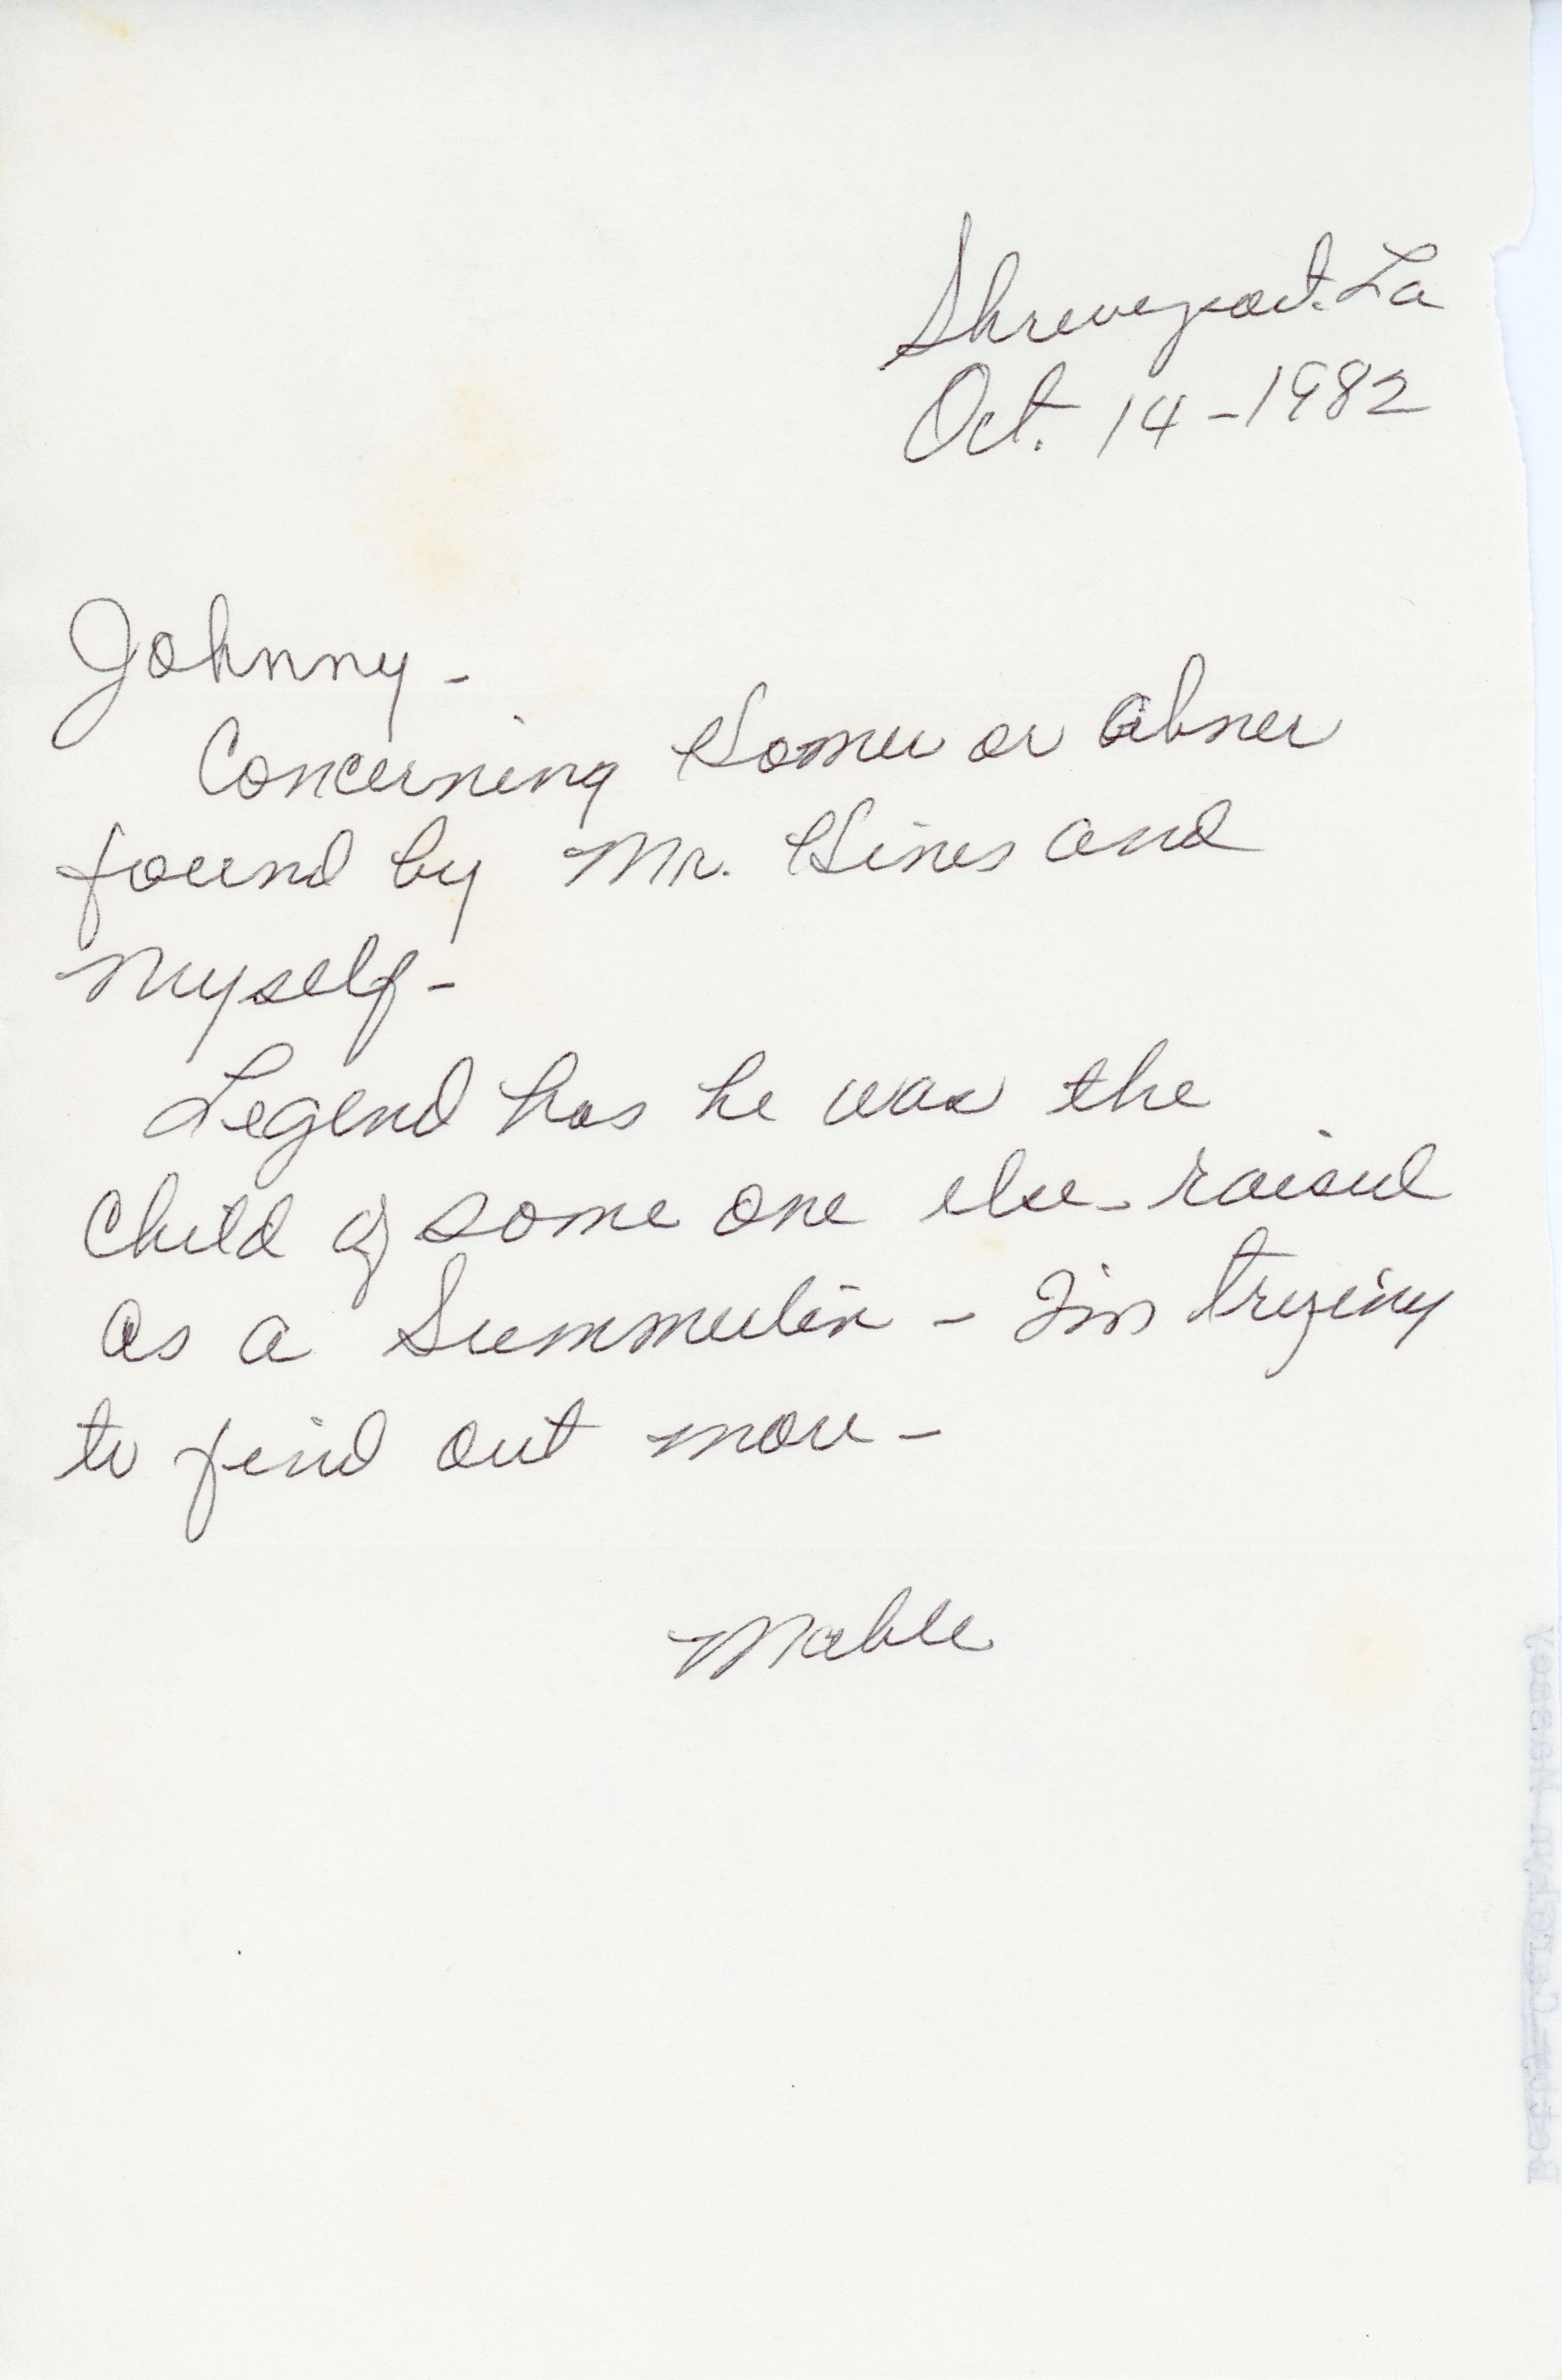 Shreveport. La
Oct. 14-1982
Johnny-
Concerning Homer or Abner
found by Mr. Hines and
Myself-
Legend has he was the
Child of some one else- raised
as a Summerlin - I'm trying
to find out more-
Mable
Betty Carolyn Massey